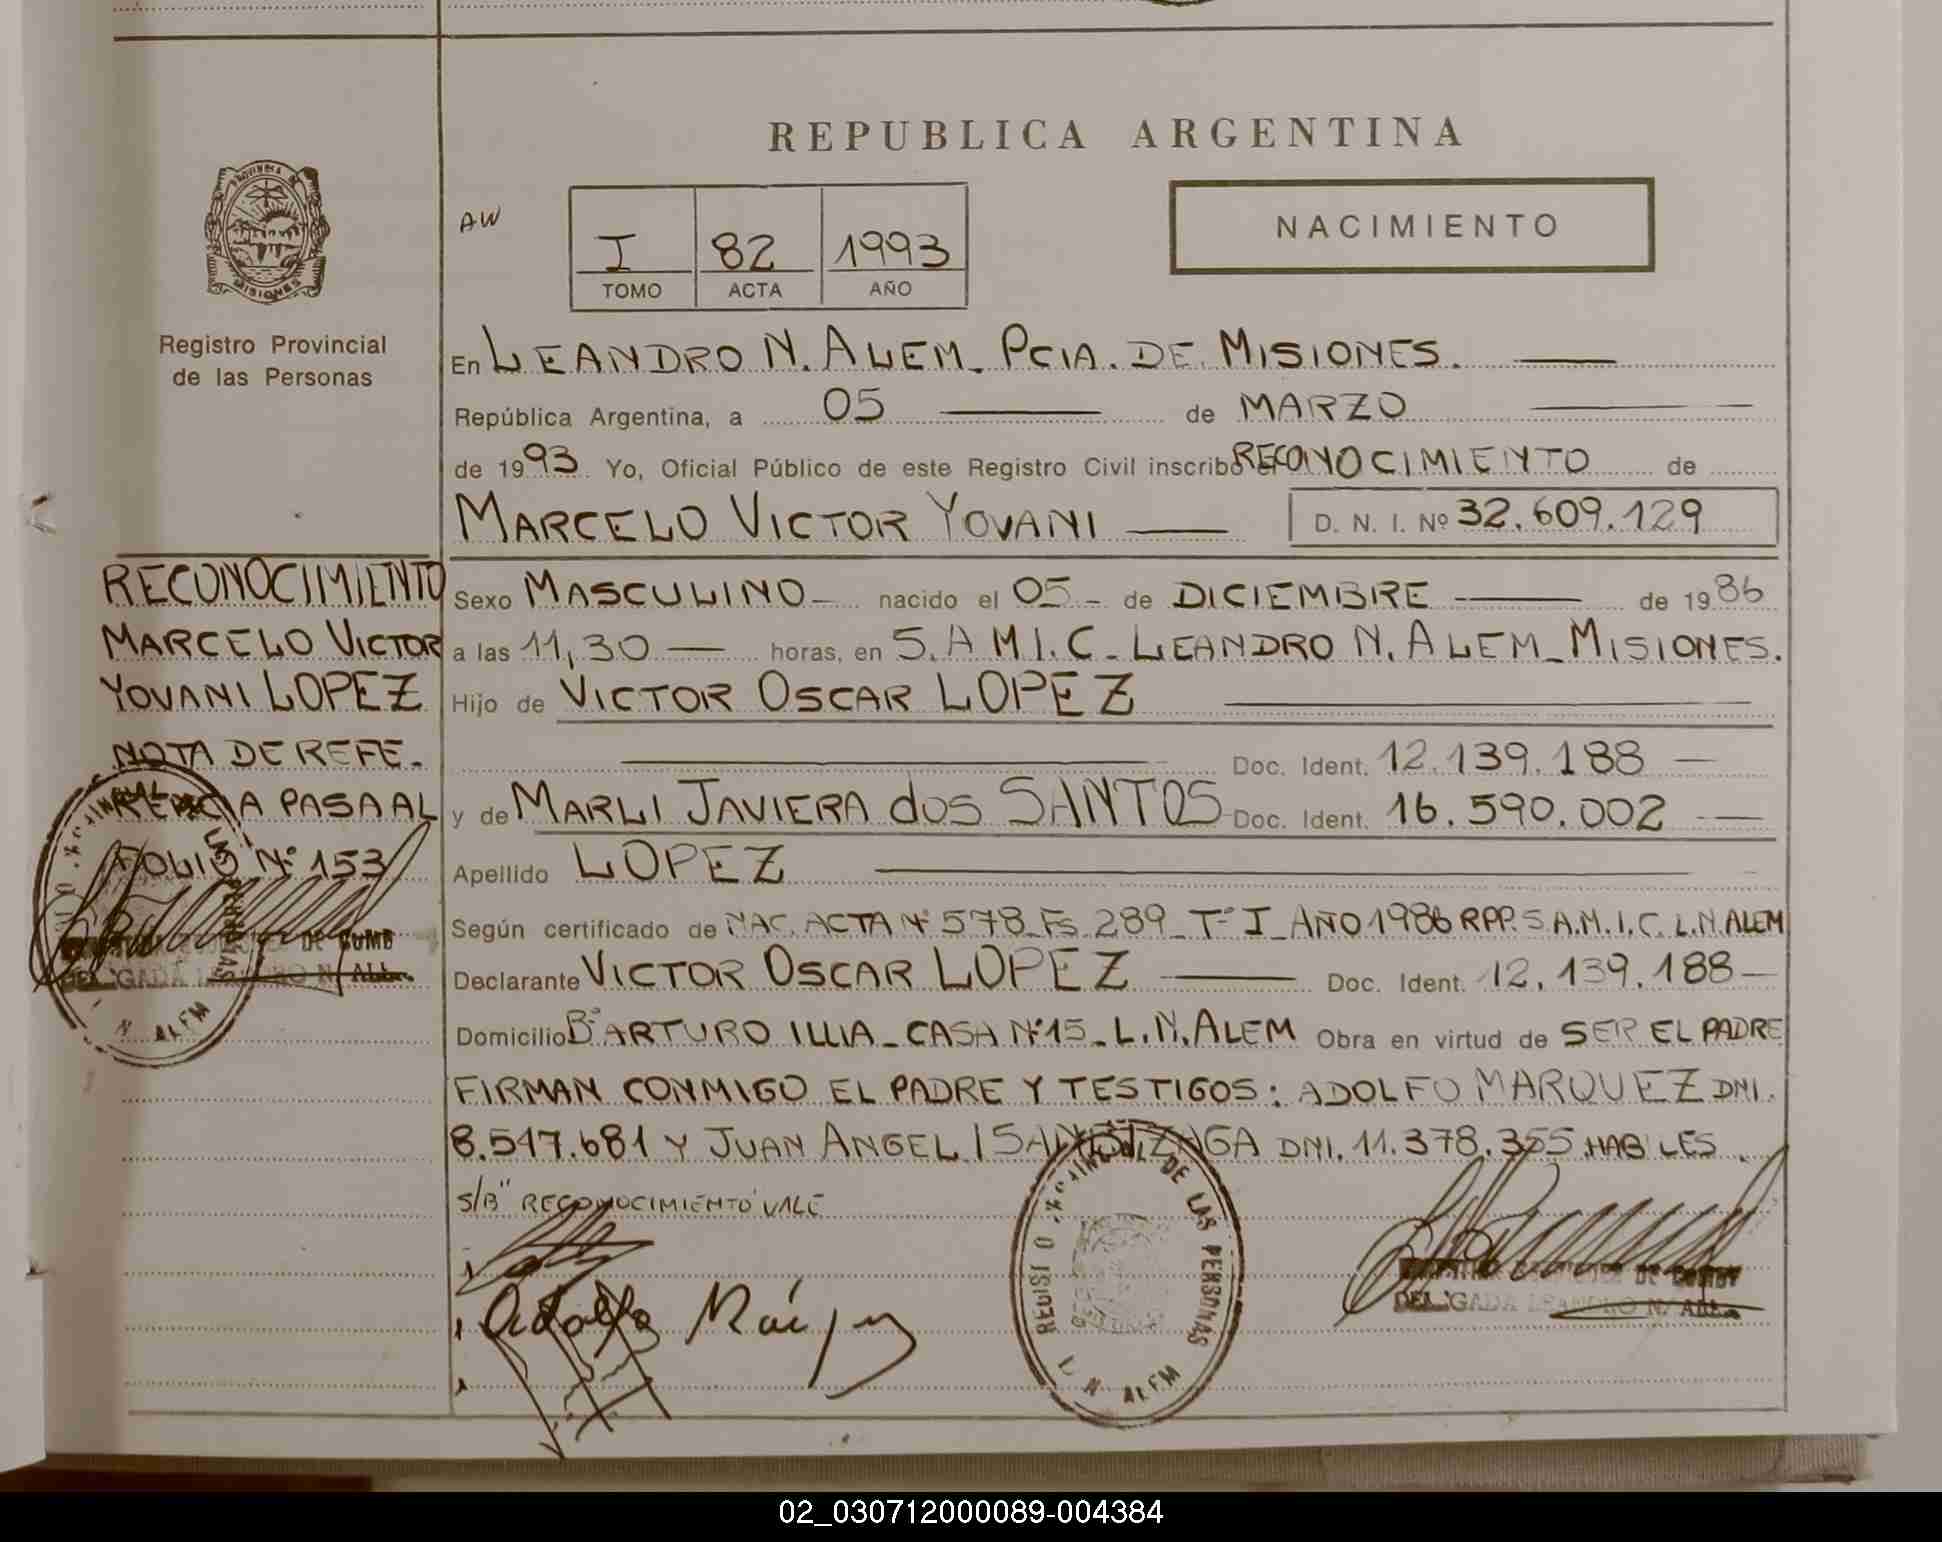 REPUBLICA ARGENTINA
PROVINCIA DE
MISIONES
Registro Provincial
de las Personas
AW
I 82 1993
TOMO ACTA AÑO
NACIMIENTO
En LEANDRO N. ALEM_ PCIA. DE MISIONES.
República Argentina, a 05 de MARZO
de 1993 Yo, Oficial Público de este Registro Civil inscribo RECONOCIMIENTO de
MARCELO VICTOR YOVANI D. N. I. Nº 32.609.129
Sexo MASCULINO nacido el 05 de DICIEMBRE de 1986
a las 11,30 horas, en S.A.M.I.C_ LEANDRO N. ALEM_ MISIONES.
Hijo de VICTOR OSCAR LOPEZ
Doc. Ident. 12.139.188
y de MARLI JAVIERA dos SANTOS Doc. Ident. 16.590.002
Apellido LOPEZ
Según certificado de NAC. ACTA Nº 578_Fs 289_ Tº I_ AÑO 1986 RPP. S.A.M.I.C. L.N. ALEM
Declarante VICTOR OSCAR LOPEZ Doc. Ident. 12.139.188
Domicilio Bº ARTURO ILLIA_ CASA Nº15_ L.N. ALEM Obra en virtud de SER EL PADRE
FIRMAN CONMIGO EL PADRE Y TESTIGOS: ADOLFO MARQUEZ DNI.
8.547.681 Y JUAN ANGEL DNI. 11.378.355 HABILES
S/B "RECONOCIMIENTO" VALE
RECONOCIMIENTO
MARCELO VICTOR
YOVANI LOPEZ
NOTA DE REFE_
RENCIA PASA AL
FOLIO Nº 153
DE LAS PERSONAS
L. N. ALEM
02_030712000089-004384